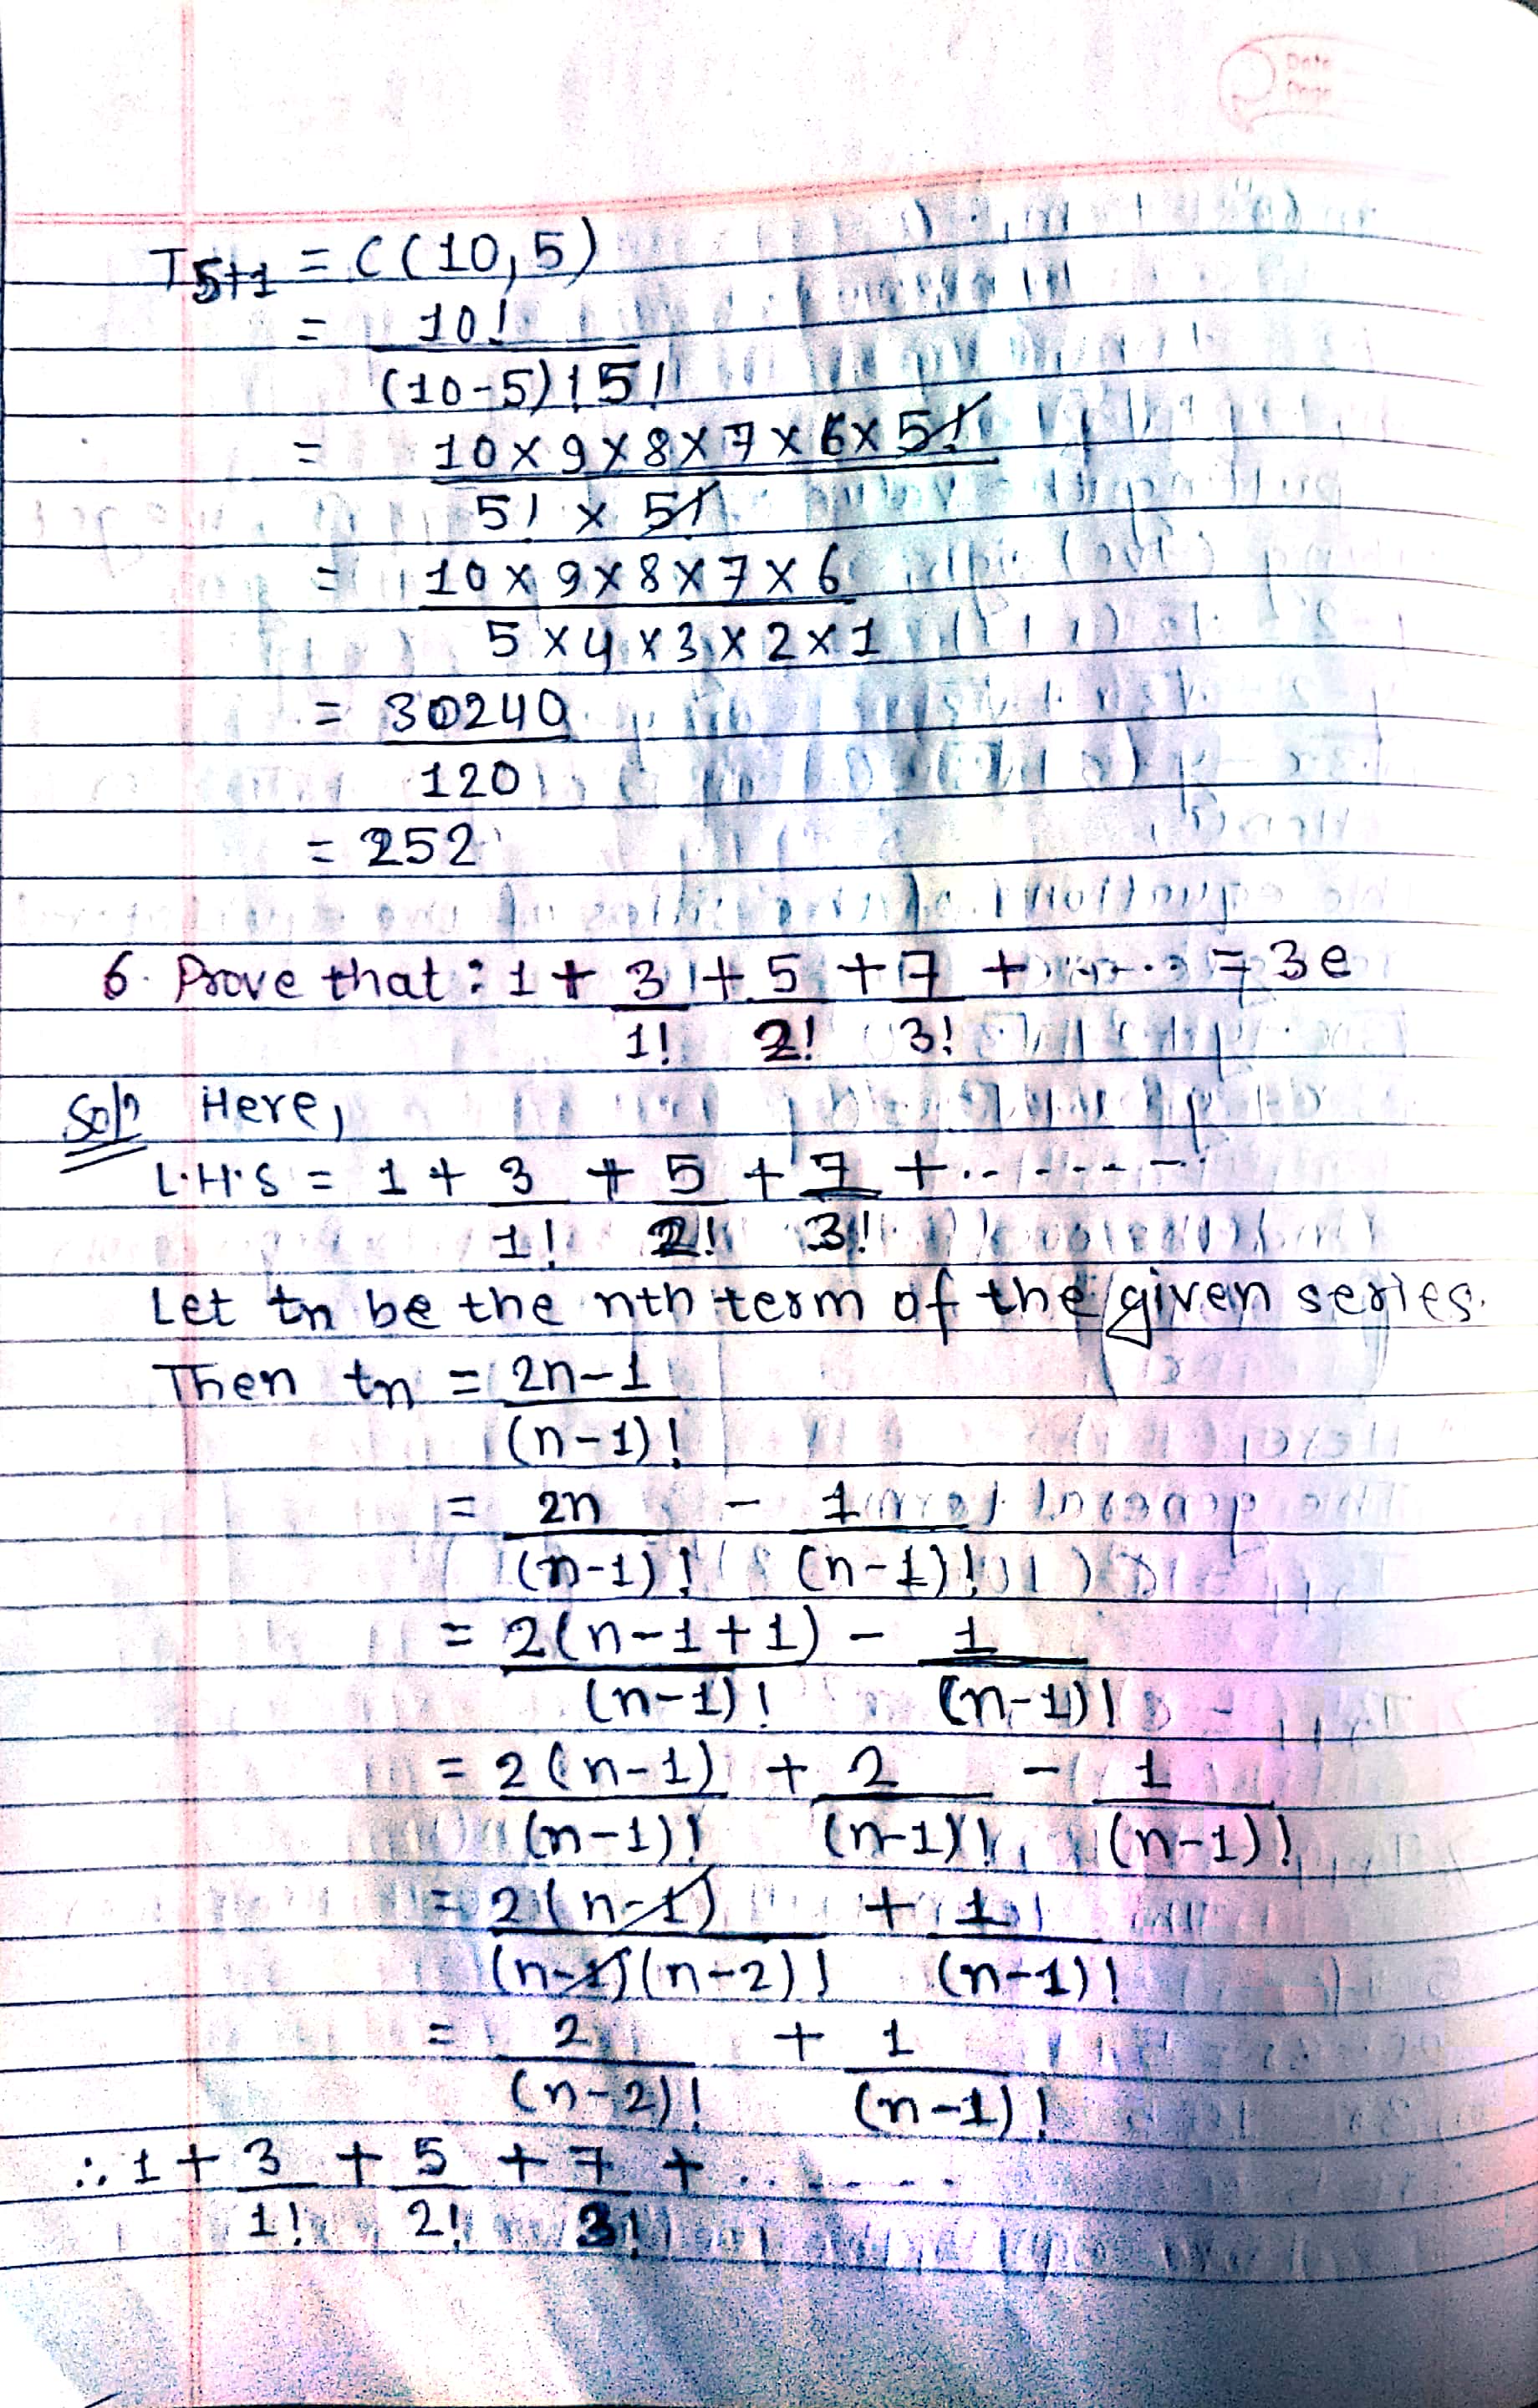 Date
Page
T5+1 = C(10,5)
= 10!
(10-5)!5!
= 10×9×8×7×6×5!
5! × 5!
= 10×9×8×7×6
5×4×3×2×1
= 30240
120
= 252
6. Prove that : 1 + 3 + 5 + 7 + ..... = 3e
1! 2! 3!
Soln Here,
L.H.S = 1 + 3 + 5 + 7 + .......
1! 2! 3!
Let tn be the nth term of the given series.
Then tn = 2n-1
(n-1)!
= 2n - 1
(n-1)! (n-1)!
= 2(n-1+1) - 1
(n-1)! (n-1)!
= 2(n-1) + 2 - 1
(n-1)! (n-1)! (n-1)!
= 2(n-1) + 1
(n-1)(n-2)! (n-1)!
= 2 + 1
(n-2)! (n-1)!
∴ 1 + 3 + 5 + 7 + .......
1! 2! 3!